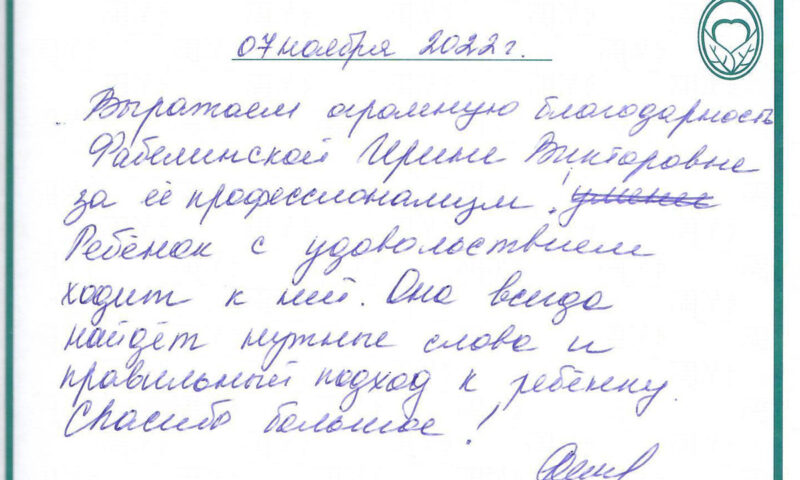 07 ноября 2022 г.
Выражаем огромную благодарность
Фабелинской Ирине Викторовне
за её профессионализм! умение
Ребёнок с удовольствием
ходит к ней. Она всегда
найдёт нужные слова и
правильный подход к ребёнку.
Спасибо большое!